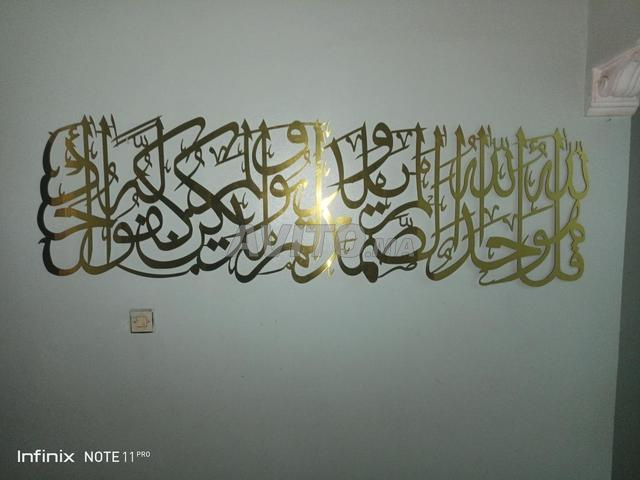 قل هو الله أحد الله الصمد لم يلد ولم يولد ولم يكن له كفوا أحد
AVITO.MA
Infinix NOTE 11 PRO